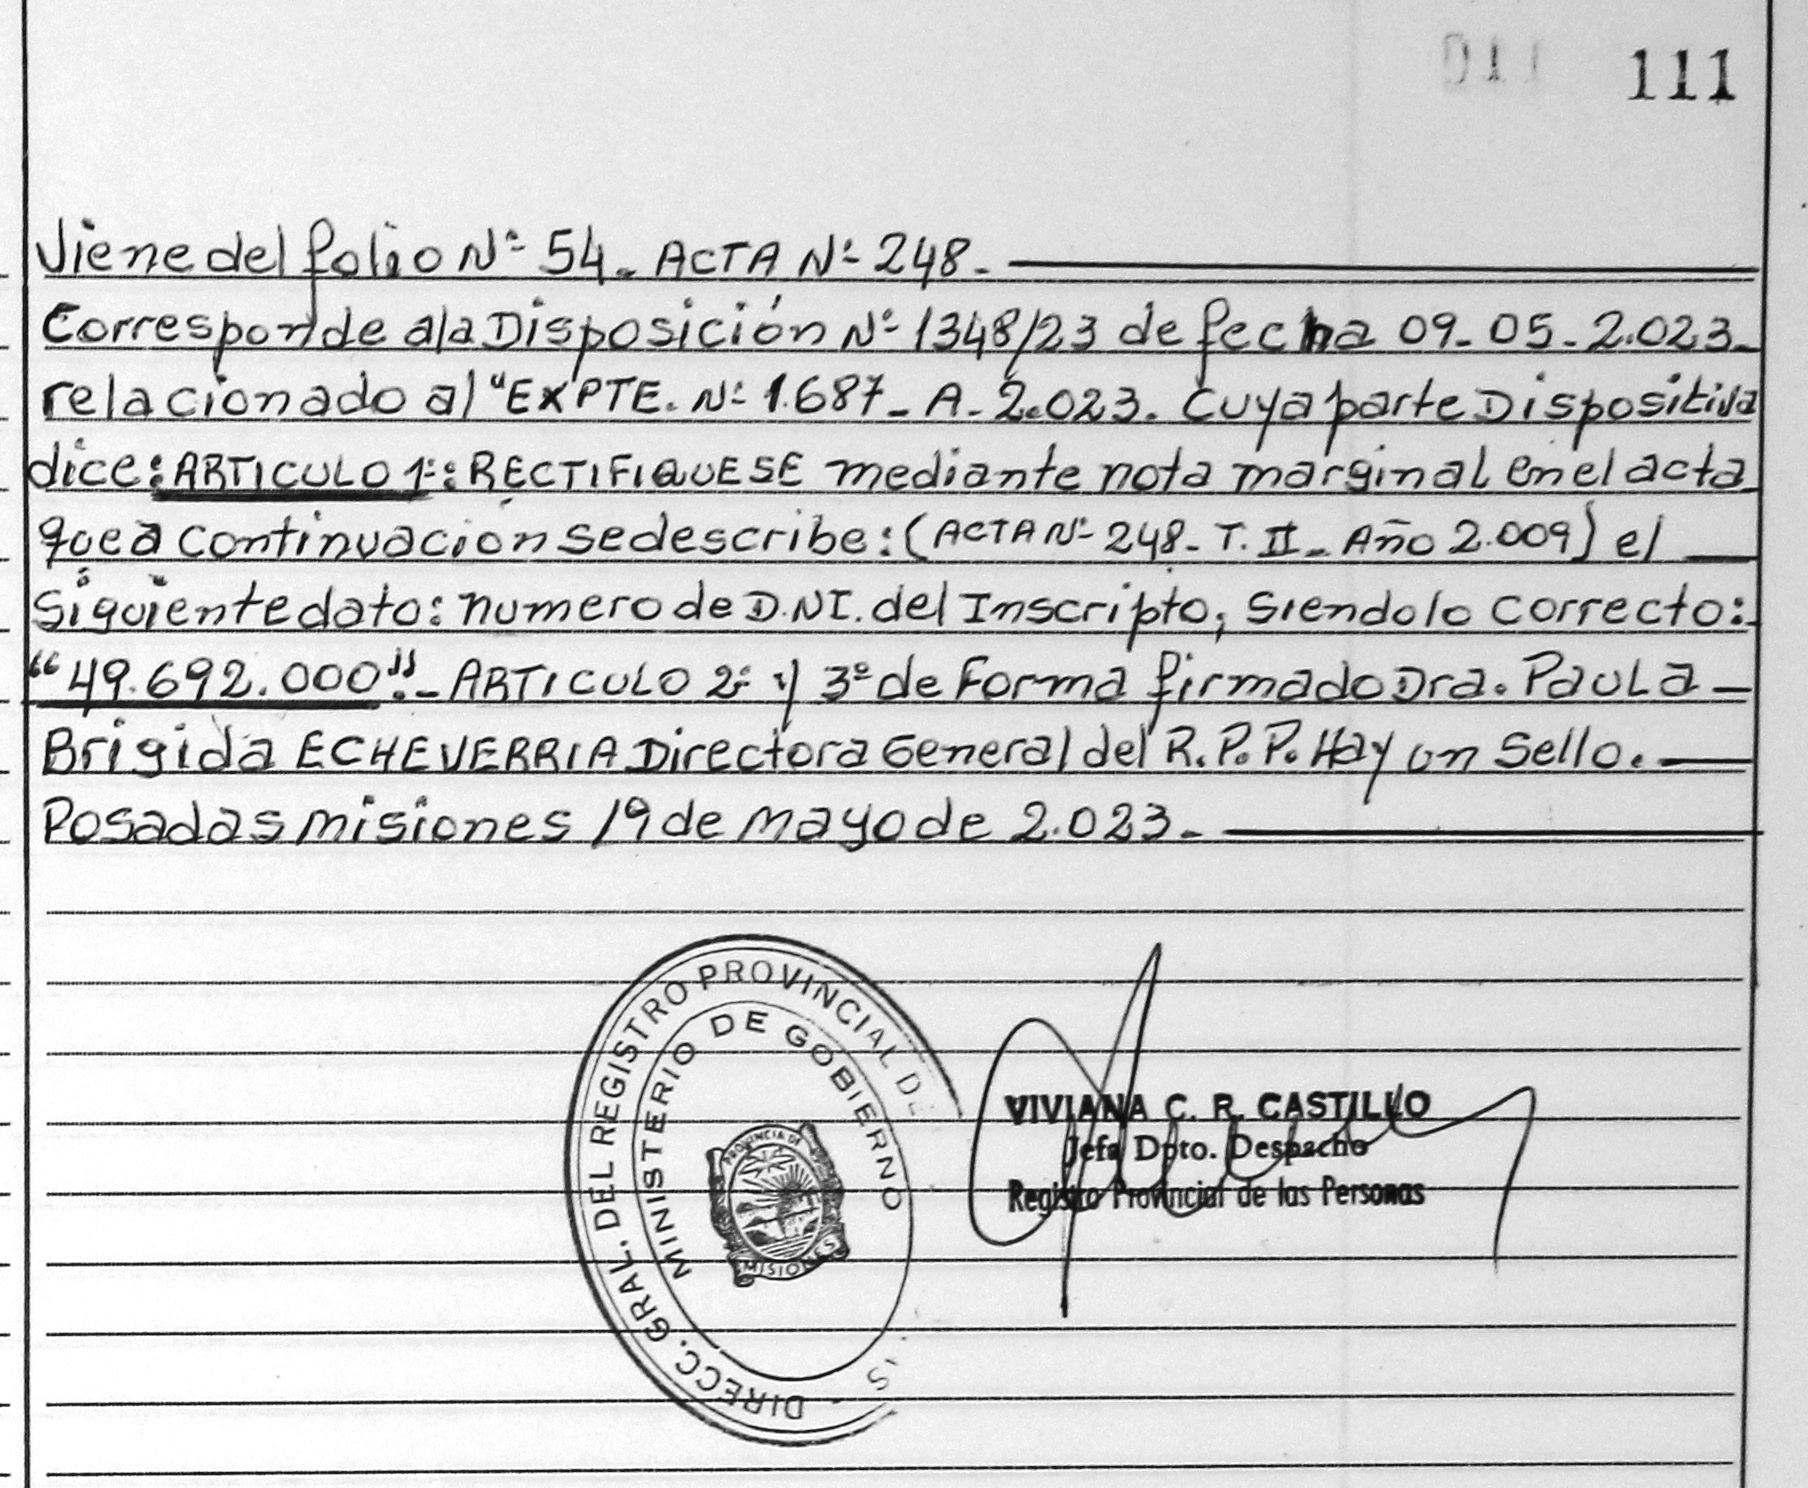 011 111
Viene del folio Nº 54. ACTA Nº 248.
Corresponde a la Disposición Nº 1348/23 de fecha 09-05-2.023.
relacionado al "EXPTE. Nº 1.687-A-2.023. Cuya parte Dispositiva
dice: ARTICULO 1º: RECTIFIQUESE mediante nota marginal en el acta
que a continuación se describe: (ACTA Nº 248- T. II- Año 2.009) el
Siguiente dato: numero de D.N.I. del Inscripto, Siendo lo correcto:
"49.692.000".- ARTICULO 2º y 3º de Forma firmado Dra. Paula
Brigida ECHEVERRIA Directora General del R.P.P. Hay un Sello.
Posadas misiones 19 de mayo de 2.023.
DIRECC. GRAL. DEL REGISTRO PROVINCIAL DE
MINISTERIO DE GOBIERNO
PROVINCIA DE
MISIONES
VIVIANA C. R. CASTILLO
Jefa Dpto. Despacho
Registro Provincial de las Personas